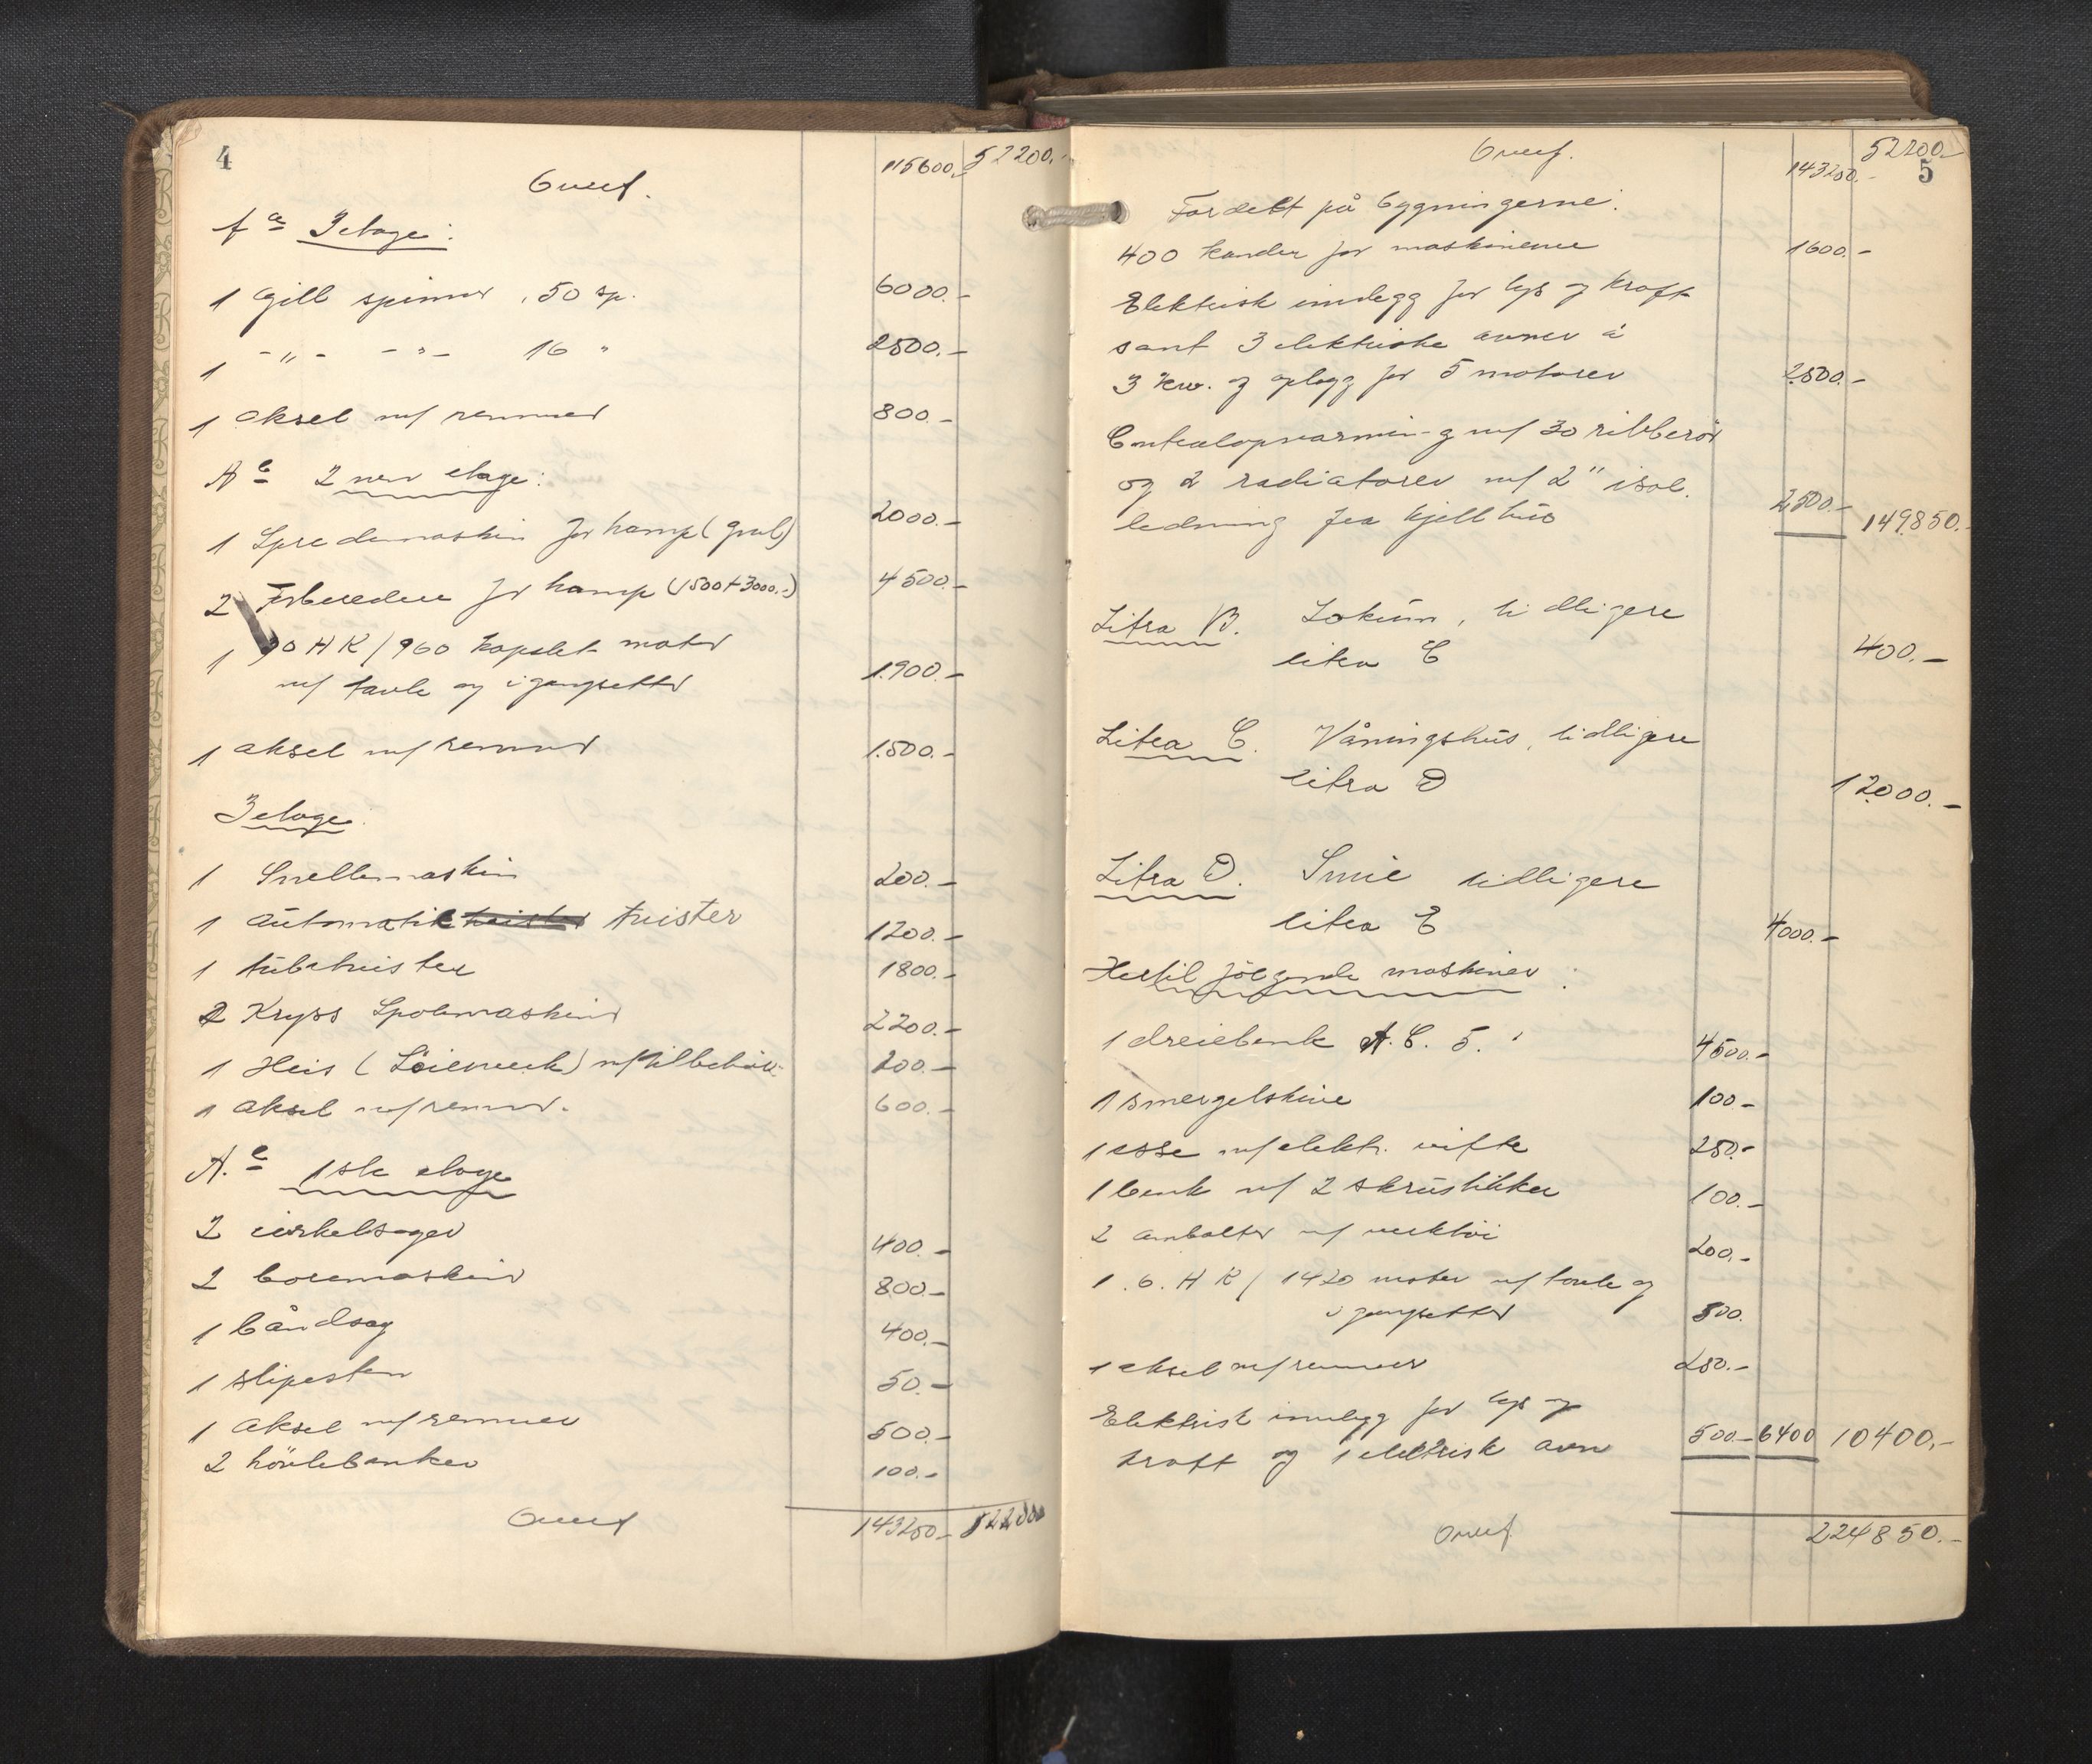 4
Overf. 115600.- 52200.-
A a 3 etage:
1 Gill spinner, 50 sp. 6000.-
1 -"- -"- 16 " 2500.-
1 aksel m/ remmer 800.-
A c 2nen etage:
1 Spredemaskin for hamp (Grub) 2000.-
2 Forberedere for hamp (1500+3000.-) 4500.-
1 90 HK/960 kapslet motor
m/ tavle og igangsetter 1900.-
1 aksel m/ remmer 1500.-
3 etage.
1 Snellemaskin 200.-
1 Automatik tvister 1200.-
1 tubetvister 1800.-
2 Kryss Spolemaskiner 2200.-
1 Heis (Löiewerk) m/ tilbehör 200.-
1 aksel m/ remmer. 600.-
A. c 1ste etage
2 cirkelsager 400.-
2 boremaskiner 800.-
1 båndsag 400.-
1 slipesten 50.-
1 aksel m/ remmer 500.-
2 hövlebenker 100.-
Overf 143250.- 52200
5
Overf. 143250.- 52200.-
Fordelt på bygningerne:
400 kander for maskinerne 1600.-
Elektrisk innlegg for lys og kraft
samt 3 elektriske ovner à
3 kw. og oplegg for 5 motorer 2500.-
Centralopvarming m/ 30 ribberör
og 2 radiatorer m/ 2" isol.
ledning fra kjelhus 2500.- 149850.-
Litra B. Lokum, tidligere
litra C 400.-
Litra C. Våningshus, tidligere
litra D 12000.-
Litra D. Smie tidligere
litra E 4000.-
Hertil fölgende maskiner:
1 dreiebenk A.C. 5. 4500.-
1 smergelskive 100.-
1 esse m/ elektr. vifte 250.-
1 benk m/ 2 skrustikker 100.-
2 ambolter m/ verktöi 200.-
1 6. HK/1420 motor m/ tavle og
igangsetter 500.
1 aksel m/ remmer 250.-
Elektrisk innlegg for lys og
kraft og 1 elektrisk ovn 500.- 6400 10400.-
Overf 224850.-